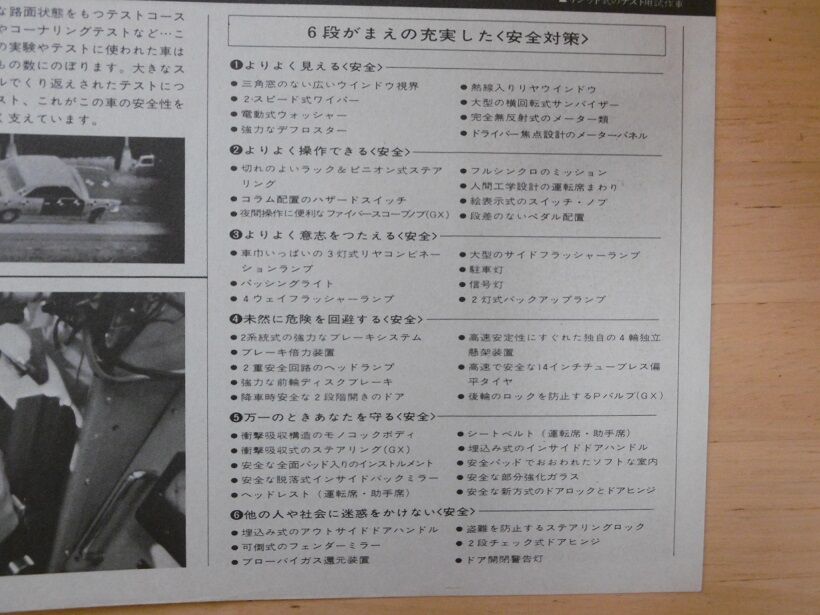 な路面状態をもつテストコース
やコーナリングテストなど…こ
の実験やテストに使われた車は
もの数にのぼります。大きなス
ルでくり返えされたテストにつ
スト、これがこの車の安全性を
く支えています。
のテスト用試作車
6段がまえの充実した<安全対策>
❶よりよく見える<安全>
●三角窓のない広いウインドウ視界
●2-スピード式ワイパー
●電動式ウォッシャー
●強力なデフロスター
●熱線入りリヤウインドウ
●大型の横回転式サンバイザー
●完全無反射式のメーター類
●ドライバー焦点設計のメーターパネル
❷よりよく操作できる<安全>
●切れのよいラック&ピニオン式ステア
リング
●コラム配置のハザードスイッチ
●夜間操作に便利なファイバースコープノブ(GX)
●フルシンクロのミッション
●人間工学設計の運転席まわり
●絵表示式のスイッチ・ノブ
●段差のないペダル配置
❸よりよく意志をつたえる<安全>
●車巾いっぱいの3灯式リヤコンビネー
ションランプ
●パッシングライト
●4ウェイフラッシャーランプ
●大型のサイドフラッシャーランプ
●駐車灯
●信号灯
●2灯式バックアップランプ
❹未然に危険を回避する<安全>
●2系統式の強力なブレーキシステム
●ブレーキ倍力装置
●2重安全回路のヘッドランプ
●強力な前輪ディスクブレーキ
●降車時安全な2段階開きのドア
●高速安定性にすぐれた独自の4輪独立
懸架装置
●高速で安全な14インチチューブレス偏
平タイヤ
●後輪のロックを防止するPバルブ(GX)
❺万一のときあなたを守る<安全>
●衝撃吸収構造のモノコックボディ
●衝撃吸収式のステアリング(GX)
●安全な全面パッド入りのインストルメント
●安全な脱落式インサイドバックミラー
●ヘッドレスト(運転席・助手席)
●シートベルト(運転席・助手席)
●埋込み式のインサイドドアハンドル
●安全パッドでおおわれたソフトな室内
●安全な部分強化ガラス
●安全な新方式のドアロックとドアヒンジ
❻他の人や社会に迷惑をかけない<安全>
●埋込み式のアウトサイドドアハンドル
●可倒式のフェンダーミラー
●ブローバイガス還元装置
●盗難を防止するステアリングロック
●2段チェック式ドアヒンジ
●ドア開閉警告灯